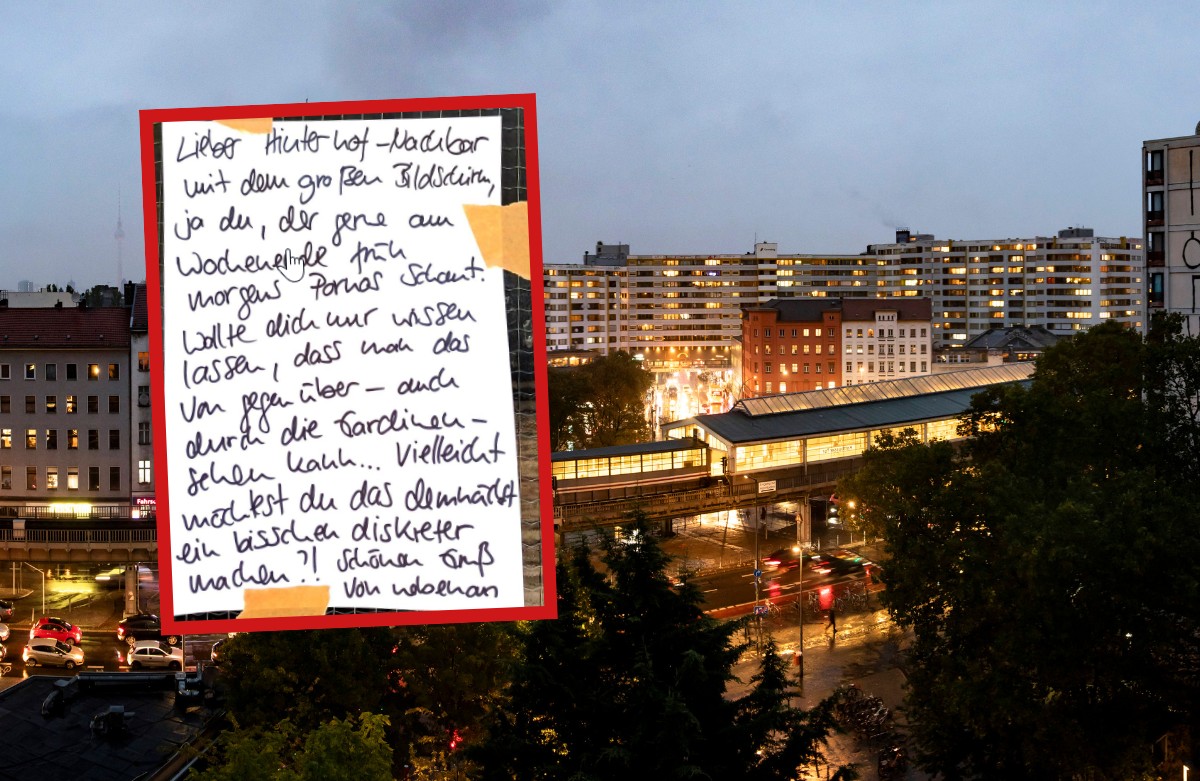 Lieber Hinterhof-Nachbar
mit dem großen Bildschirm,
ja du, der gerne am
Wochenende früh
morgens Pornos schaut.
Wollte dich nur wissen
lassen, dass man das
von gegenüber – auch
durch die Gardinen –
sehen kann... Vielleicht
möchtest du das demnächst
ein bisschen diskreter
machen?! Schönen Gruß
von nebenan
Fahrsc